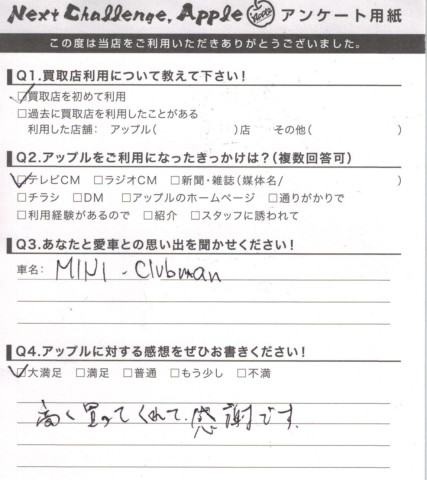 Next Challenge, Apple Apple アンケート用紙
この度は当店をご利用いただきありがとうございました。
Q1.買取店利用について教えて下さい！
☑買取店を初めて利用
□過去に買取店を利用したことがある
利用した店舗： アップル（ ）店 その他（ ）
Q2.アップルをご利用になったきっかけは？（複数回答可）
☑テレビCM □ラジオCM □新聞・雑誌（媒体名/ ）
□チラシ □DM □アップルのホームページ □通りがかりで
□利用経験があるので □紹介 □スタッフに誘われて
Q3.あなたと愛車との思い出を聞かせください！
車名： MINI - Clubman
Q4.アップルに対する感想をぜひお書きください！
☑大満足 □満足 □普通 □もう少し □不満
高く買ってくれて、感謝です。